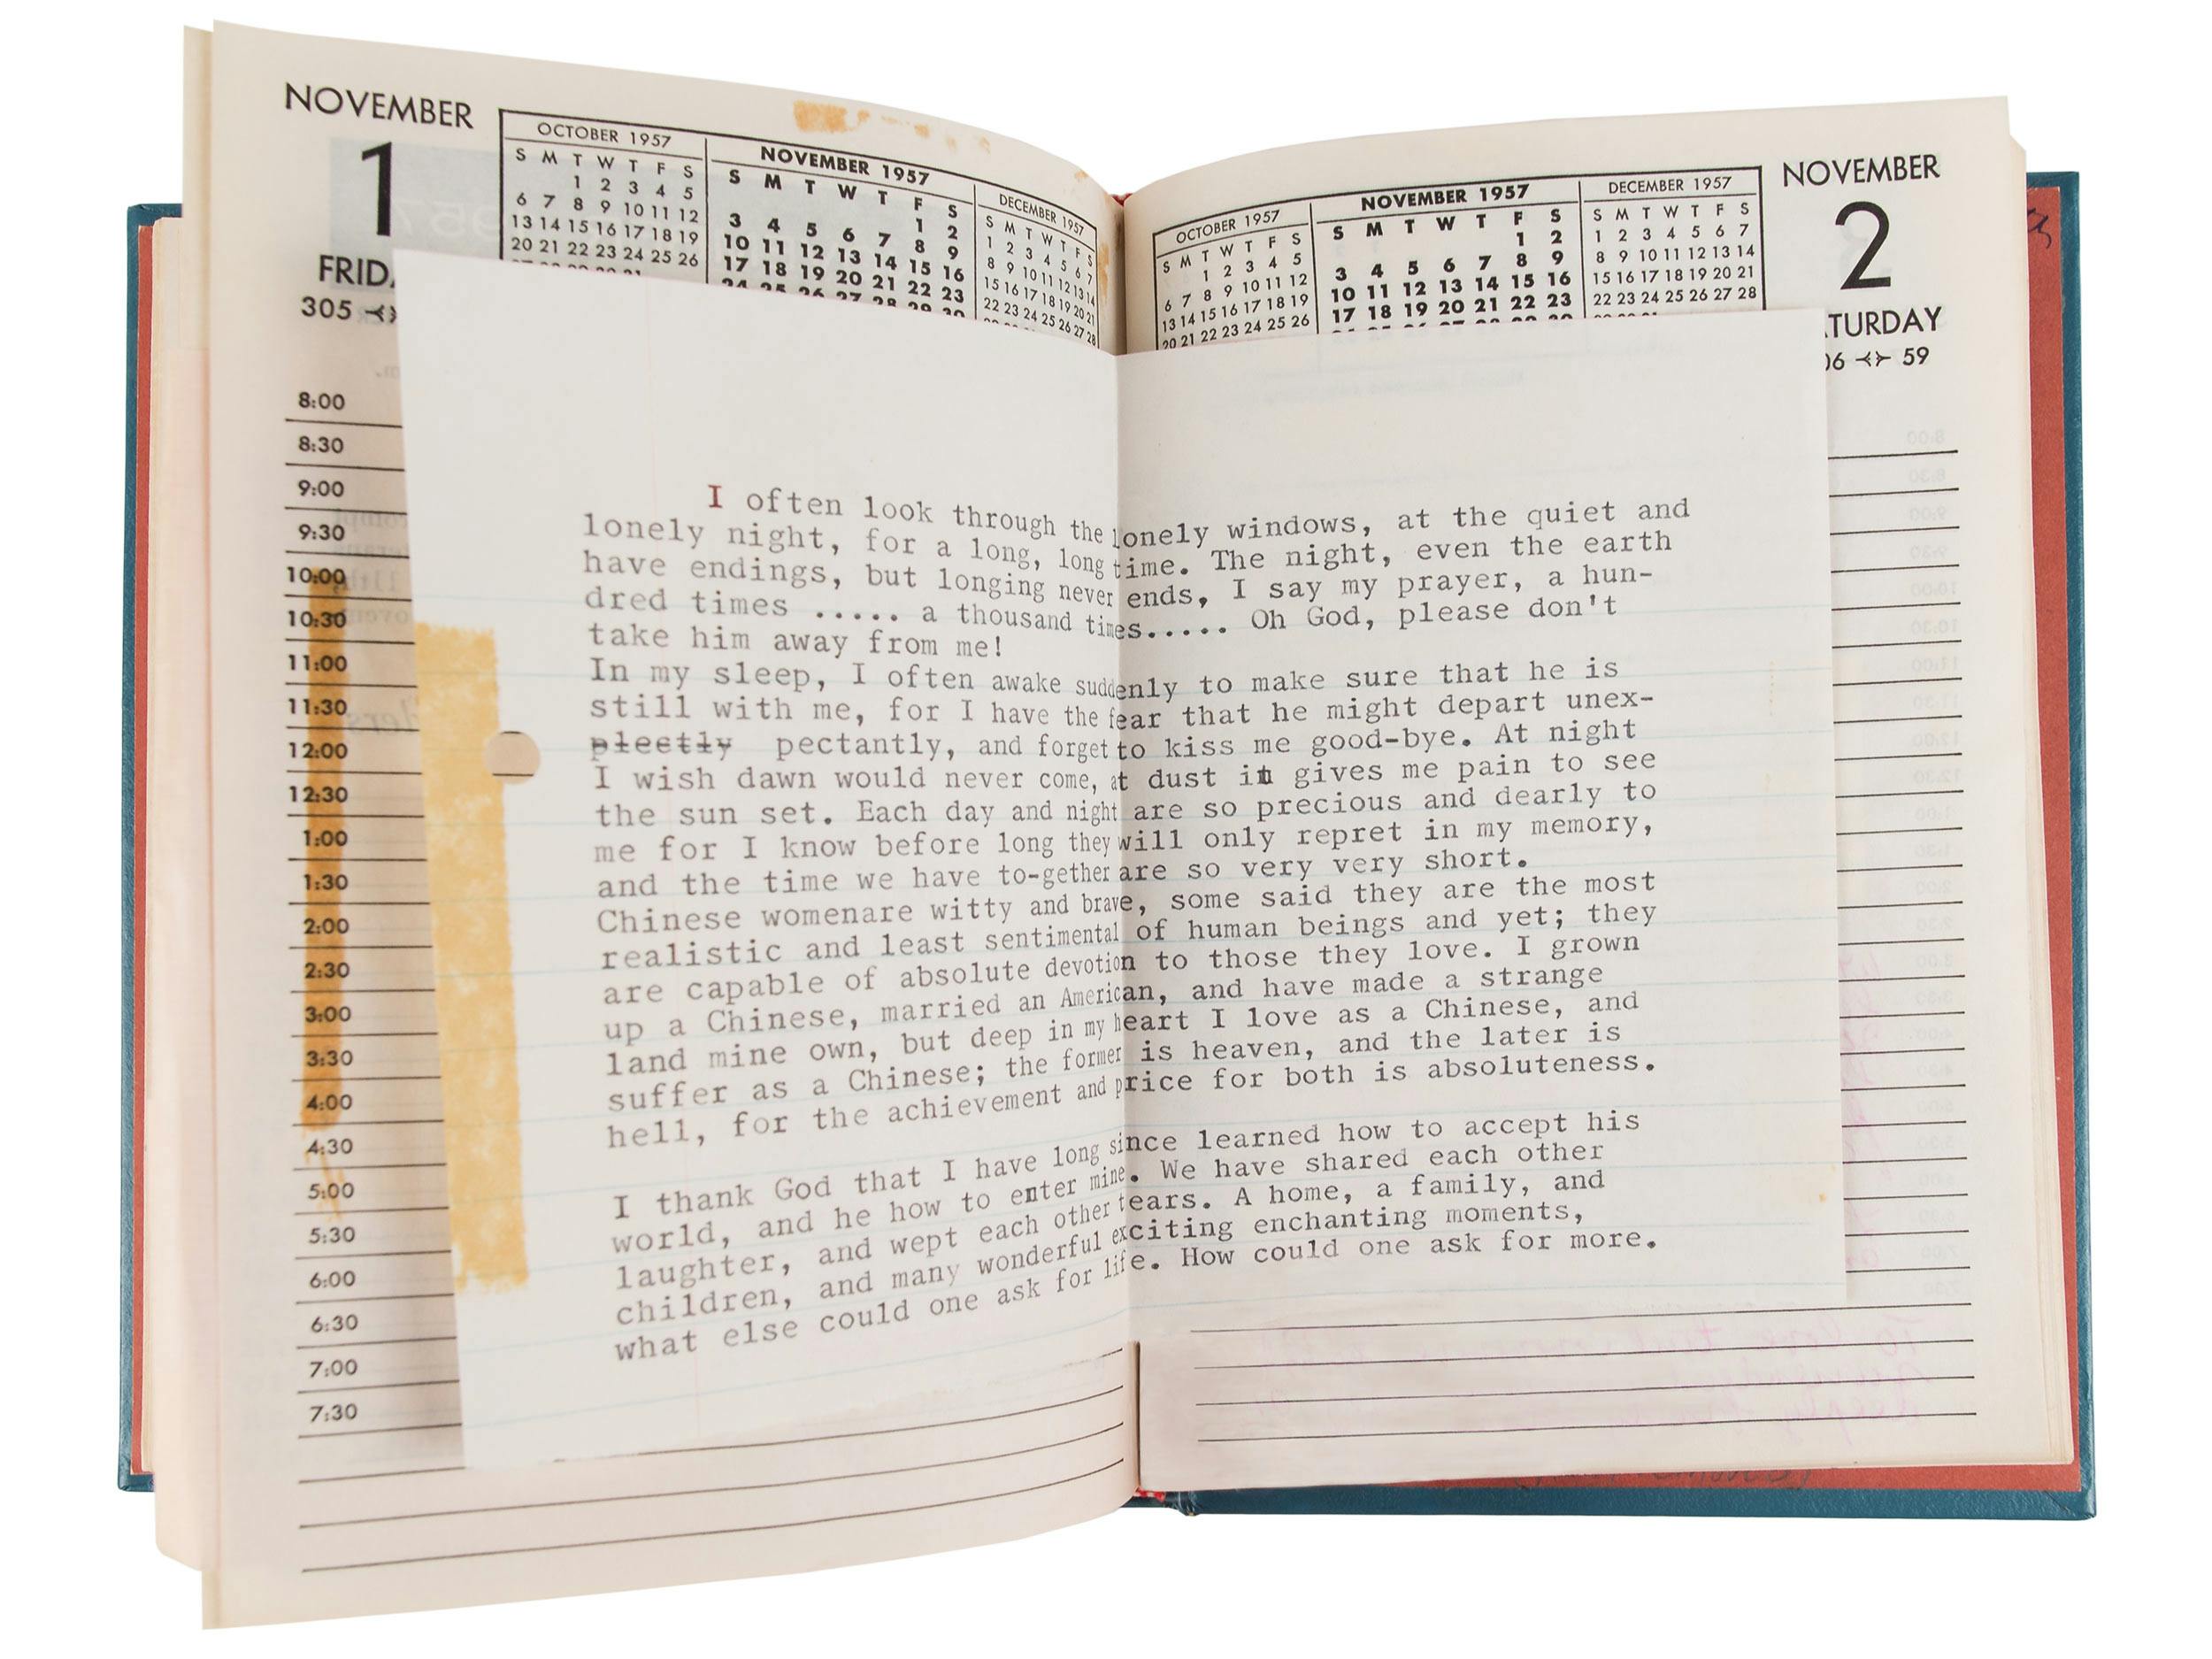 NOVEMBER
1
FRID
305
OCTOBER 1957
S M T W T F S
1 2 3 4 5
6 7 8 9 10 11 12
13 14 15 16 17 18 19
20 21 22 23 24 25 26
NOVEMBER 1957
S M T W T F S
1 2
3 4 5 6 7 8 9
10 11 12 13 14 15 16
17 18 19 20 21 22 23
24 25 26 27 28 29 30
DECEMBER 1957
S M T W T F S
1 2 3 4 5 6 7
8 9 10 11 12 13 14
15 16 17 18 19 20 21
22 23 24 25 26 27 28
8:00
8:30
9:00
9:30
10:00
10:30
11:00
11:30
12:00
12:30
1:00
1:30
2:00
2:30
3:00
3:30
4:00
4:30
5:00
5:30
6:00
6:30
7:00
7:30
I often look through the lonely windows, at the quiet and
lonely night, for a long, long time. The night, even the earth
have endings, but longing never ends, I say my prayer, a hun-
dred times ..... a thousand times..... Oh God, please don't
take him away from me!
In my sleep, I often awake suddenly to make sure that he is
still with me, for I have the fear that he might depart unex-
plectly pectantly, and forget to kiss me good-bye. At night
I wish dawn would never come, at dust it gives me pain to see
the sun set. Each day and night are so precious and dearly to
me for I know before long they will only repret in my memory,
and the time we have to-gether are so very very short.
Chinese womenare witty and brave, some said they are the most
realistic and least sentimental of human beings and yet; they
are capable of absolute devotion to those they love. I grown
up a Chinese, married an American, and have made a strange
land mine own, but deep in my heart I love as a Chinese, and
suffer as a Chinese; the former is heaven, and the later is
hell, for the achievement and price for both is absoluteness.
I thank God that I have long since learned how to accept his
world, and he how to enter mine. We have shared each other
laughter, and wept each other tears. A home, a family, and
children, and many wonderful exciting enchanting moments,
what else could one ask for life. How could one ask for more.
OCTOBER 1957
S M T W T F S
1 2 3 4 5
6 7 8 9 10 11 12
13 14 15 16 17 18 19
20 21 22 23 24 25 26
NOVEMBER 1957
S M T W T F S
1 2
3 4 5 6 7 8 9
10 11 12 13 14 15 16
17 18 19 20 21 22 23
DECEMBER 1957
S M T W T F S
1 2 3 4 5 6 7
8 9 10 11 12 13 14
15 16 17 18 19 20 21
22 23 24 25 26 27 28
NOVEMBER
2
TURDAY
06 59